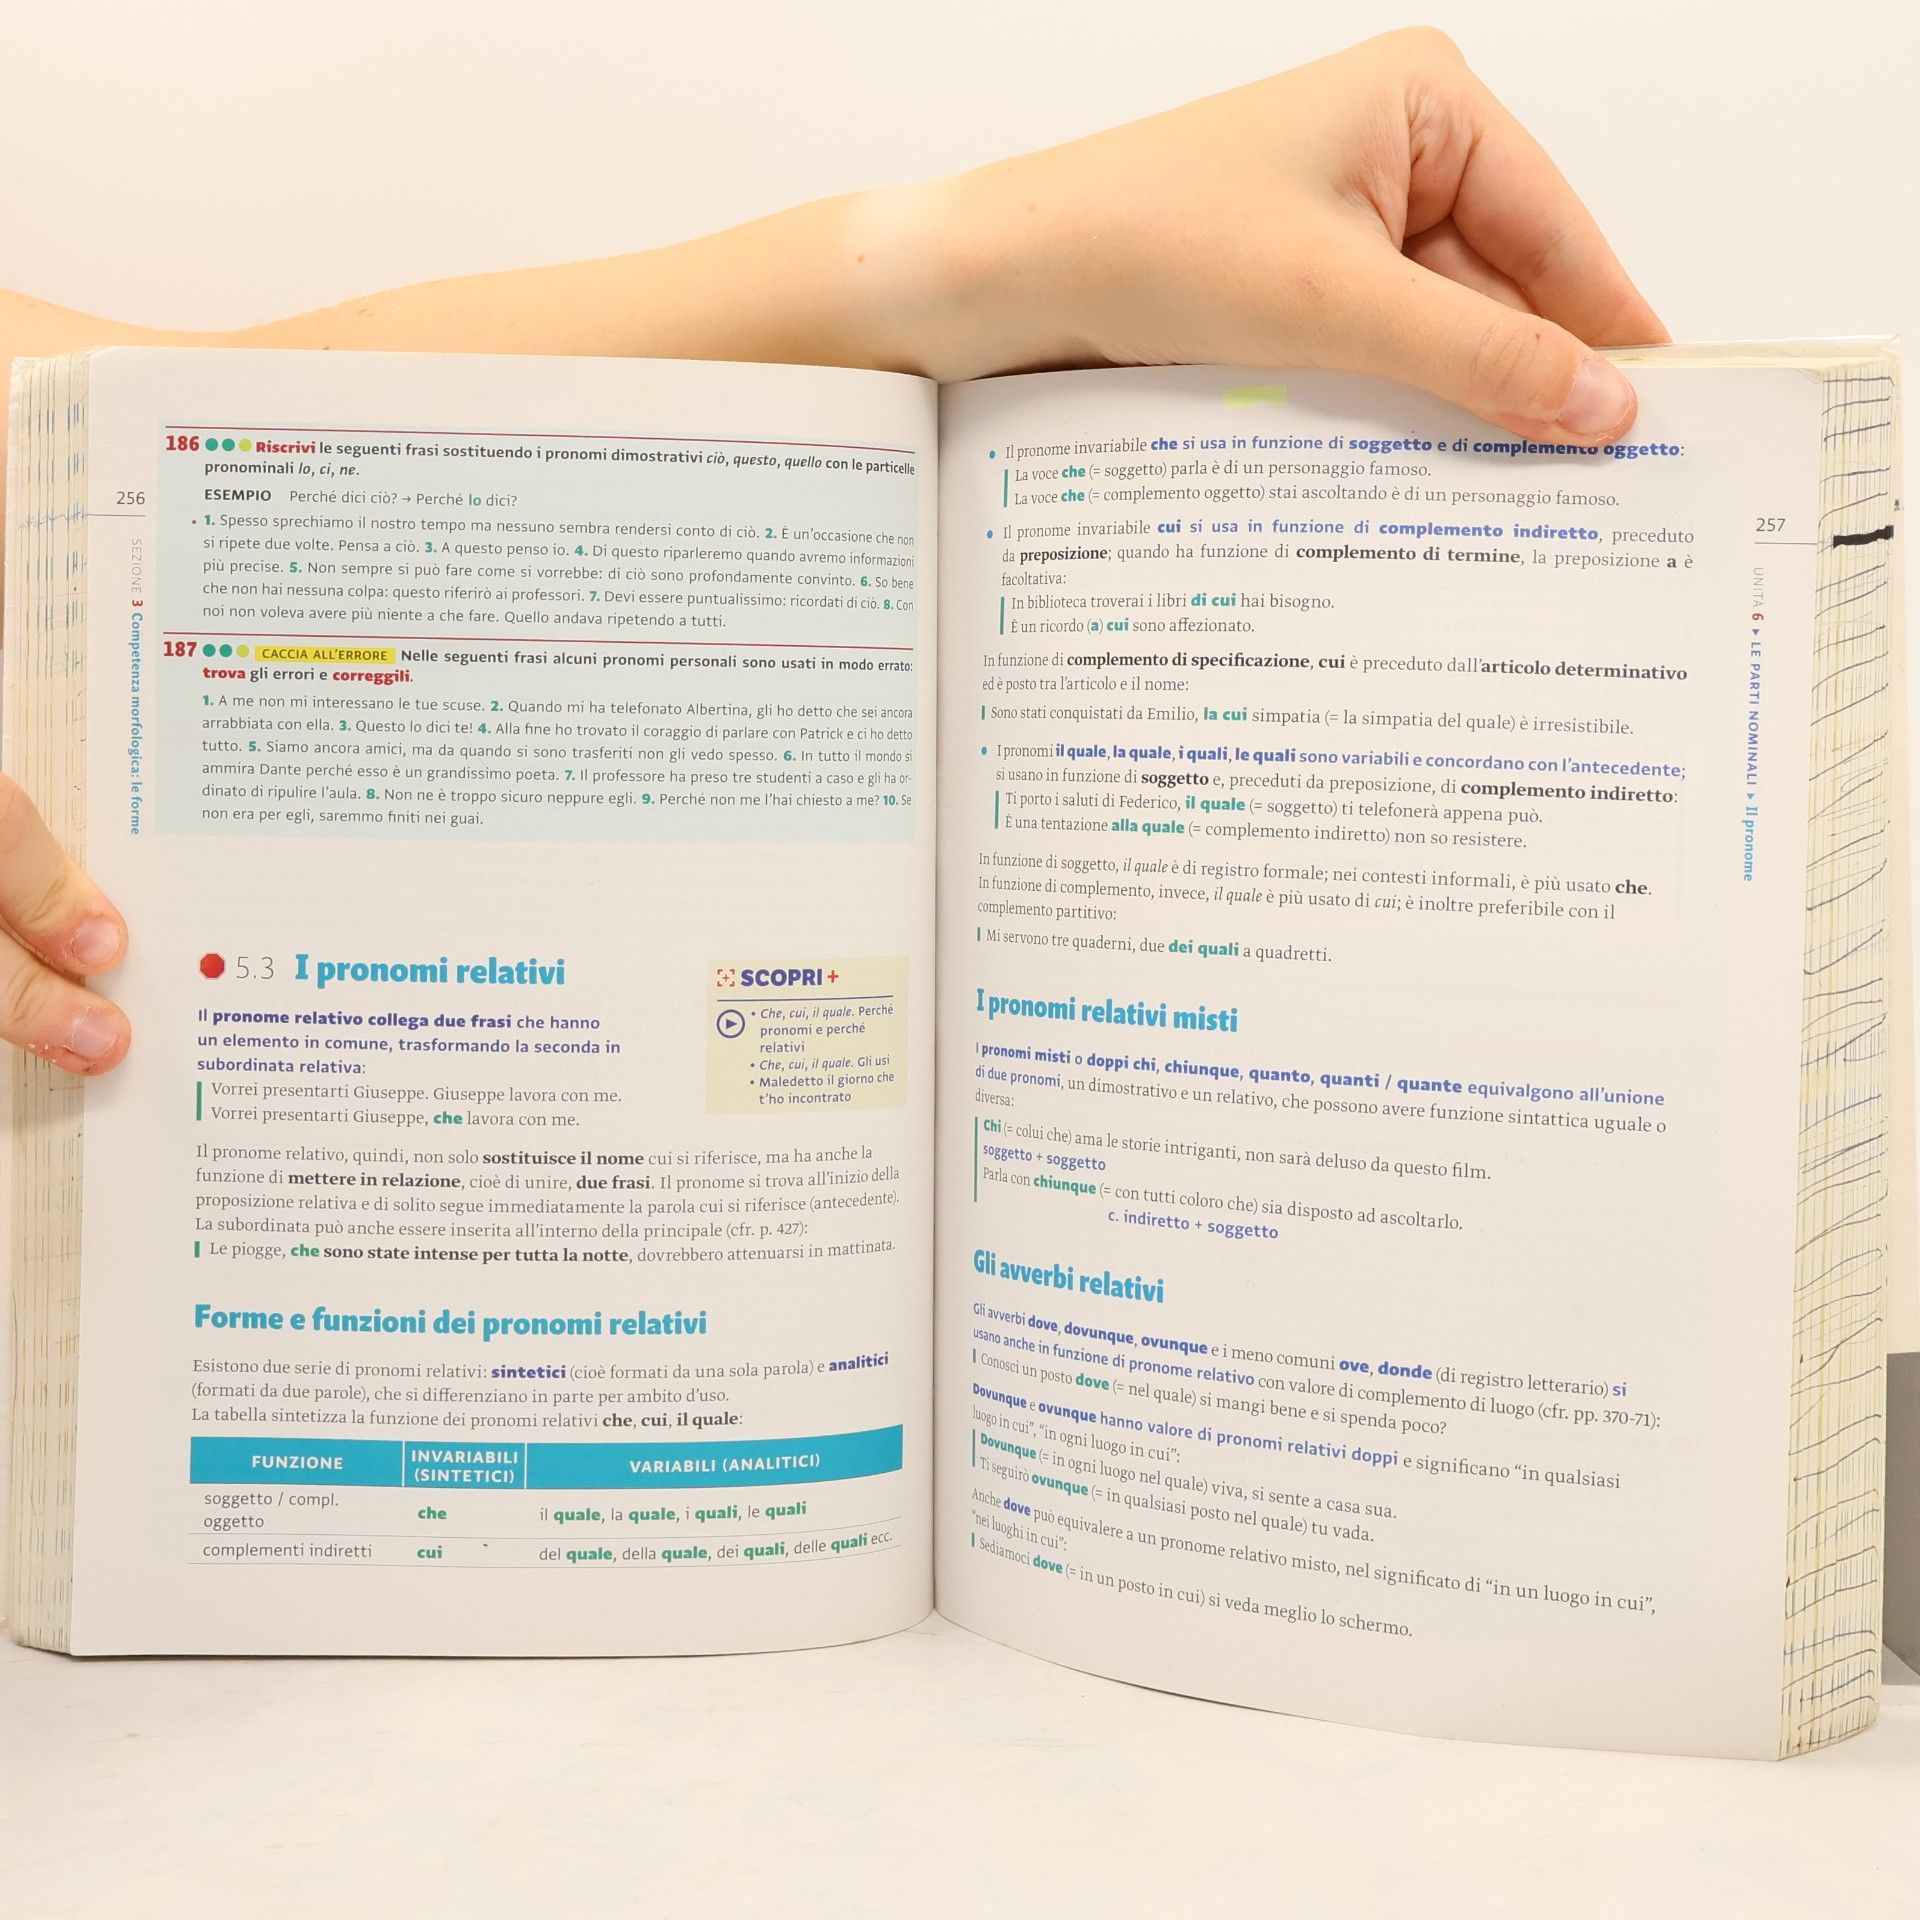 186 Riscrivi le seguenti frasi sostituendo i pronomi dimostrativi ciò, questo, quello con le particelle
pronominali lo, ci, ne.
ESEMPIO Perché dici ciò? → Perché lo dici?
1. Spesso sprechiamo il nostro tempo ma nessuno sembra rendersi conto di ciò. 2. È un'occasione che non
si ripete due volte. Pensa a ciò. 3. A questo penso io. 4. Di questo riparleremo quando avremo informazioni
più precise. 5. Non sempre si può fare come si vorrebbe: di ciò sono profondamente convinto. 6. So bene
che non hai nessuna colpa: questo riferirò ai professori. 7. Devi essere puntualissimo: ricordati di ciò. 8. Con
noi non voleva avere più niente a che fare. Quello andava ripetendo a tutti.
187 CACCIA ALL'ERRORE Nelle seguenti frasi alcuni pronomi personali sono usati in modo errato:
trova gli errori e correggili.
1. A me non mi interessano le tue scuse. 2. Quando mi ha telefonato Albertina, gli ho detto che sei ancora
arrabbiata con ella. 3. Questo lo dici te! 4. Alla fine ho trovato il coraggio di parlare con Patrick e ci ho detto
tutto. 5. Siamo ancora amici, ma da quando si sono trasferiti non gli vedo spesso. 6. In tutto il mondo si
ammira Dante perché esso è un grandissimo poeta. 7. Il professore ha preso tre studenti a caso e gli ha or-
dinato di ripulire l'aula. 8. Non ne è troppo sicuro neppure egli. 9. Perché non me l'hai chiesto a me? 10. Se
non era per egli, saremmo finiti nei guai.
256
SEZIONE 3 Competenza morfologica: le forme
5.3 I pronomi relativi
Il pronome relativo collega due frasi che hanno
un elemento in comune, trasformando la seconda in
subordinata relativa:
Vorrei presentarti Giuseppe. Giuseppe lavora con me.
Vorrei presentarti Giuseppe, che lavora con me.
SCOPRI+
• Che, cui, il quale. Perché
pronomi e perché
relativi
• Che, cui, il quale. Gli usi
• Maledetto il giorno che
t'ho incontrato
Il pronome relativo, quindi, non solo sostituisce il nome cui si riferisce, ma ha anche la
funzione di mettere in relazione, cioè di unire, due frasi. Il pronome si trova all'inizio della
proposizione relativa e di solito segue immediatamente la parola cui si riferisce (antecedente).
La subordinata può anche essere inserita all'interno della principale (cfr. p. 427):
Le piogge, che sono state intense per tutta la notte, dovrebbero attenuarsi in mattinata.
Forme e funzioni dei pronomi relativi
Esistono due serie di pronomi relativi: sintetici (cioè formati da una sola parola) e analitici
(formati da due parole), che si differenziano in parte per ambito d'uso.
La tabella sintetizza la funzione dei pronomi relativi che, cui, il quale:
FUNZIONE INVARIABILI (SINTETICI) VARIABILI (ANALITICI)
soggetto / compl. oggetto che il quale, la quale, i quali, le quali
complementi indiretti cui del quale, della quale, dei quali, delle quali ecc.
• Il pronome invariabile che si usa in funzione di soggetto e di complemento oggetto:
La voce che (= soggetto) parla è di un personaggio famoso.
La voce che (= complemento oggetto) stai ascoltando è di un personaggio famoso.
• Il pronome invariabile cui si usa in funzione di complemento indiretto, preceduto
da preposizione; quando ha funzione di complemento di termine, la preposizione a è
facoltativa:
In biblioteca troverai i libri di cui hai bisogno.
È un ricordo (a) cui sono affezionato.
In funzione di complemento di specificazione, cui è preceduto dall'articolo determinativo
ed è posto tra l'articolo e il nome:
Sono stati conquistati da Emilio, la cui simpatia (= la simpatia del quale) è irresistibile.
• I pronomi il quale, la quale, i quali, le quali sono variabili e concordano con l'antecedente;
si usano in funzione di soggetto e, preceduti da preposizione, di complemento indiretto:
Ti porto i saluti di Federico, il quale (= soggetto) ti telefonerà appena può.
È una tentazione alla quale (= complemento indiretto) non so resistere.
In funzione di soggetto, il quale è di registro formale; nei contesti informali, è più usato che.
In funzione di complemento, invece, il quale è più usato di cui; è inoltre preferibile con il
complemento partitivo:
Mi servono tre quaderni, due dei quali a quadretti.
I pronomi relativi misti
I pronomi misti o doppi chi, chiunque, quanto, quanti / quante equivalgono all'unione
di due pronomi, un dimostrativo e un relativo, che possono avere funzione sintattica uguale o
diversa:
Chi (= colui che) ama le storie intriganti, non sarà deluso da questo film.
soggetto + soggetto
Parla con chiunque (= con tutti coloro che) sia disposto ad ascoltarlo.
c. indiretto + soggetto
Gli avverbi relativi
Gli avverbi dove, dovunque, ovunque e i meno comuni ove, donde (di registro letterario) si
usano anche in funzione di pronome relativo con valore di complemento di luogo (cfr. pp. 370-71):
Conosci un posto dove (= nel quale) si mangi bene e si spenda poco?
Dovunque e ovunque hanno valore di pronomi relativi doppi e significano "in qualsiasi
luogo in cui", "in ogni luogo in cui":
Dovunque (= in ogni luogo nel quale) viva, si sente a casa sua.
Ti seguirò ovunque (= in qualsiasi posto nel quale) tu vada.
Anche dove può equivalere a un pronome relativo misto, nel significato di "in un luogo in cui",
"nei luoghi in cui":
Sediamoci dove (= in un posto in cui) si veda meglio lo schermo.
257
UNITÀ 6 ▸ LE PARTI NOMINALI ▸ Il pronome